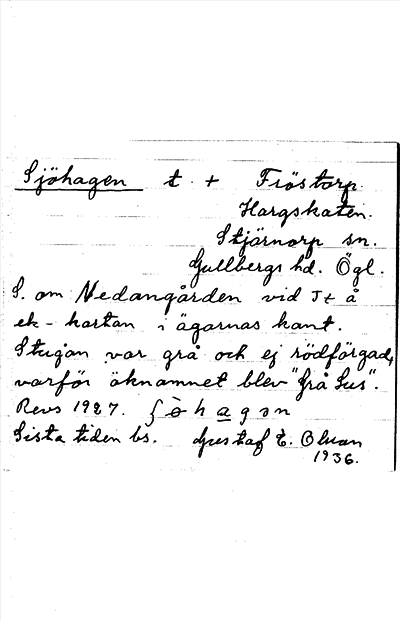 Sjöhagen t. + Fröstorp.
Hargskaten.
Stjärnorp sn.
Gullbergs hd. Ögl.
S. om Nedangården vid J+ å
ek-kartan i ägarnas kant.
Stugan var grå och ej rödfärgad,
varför öknamnet blev "Grå Sus".
Revs 1927. ʃö̀hagən
Sista tiden bs. Gustaf E. Olson
1936.